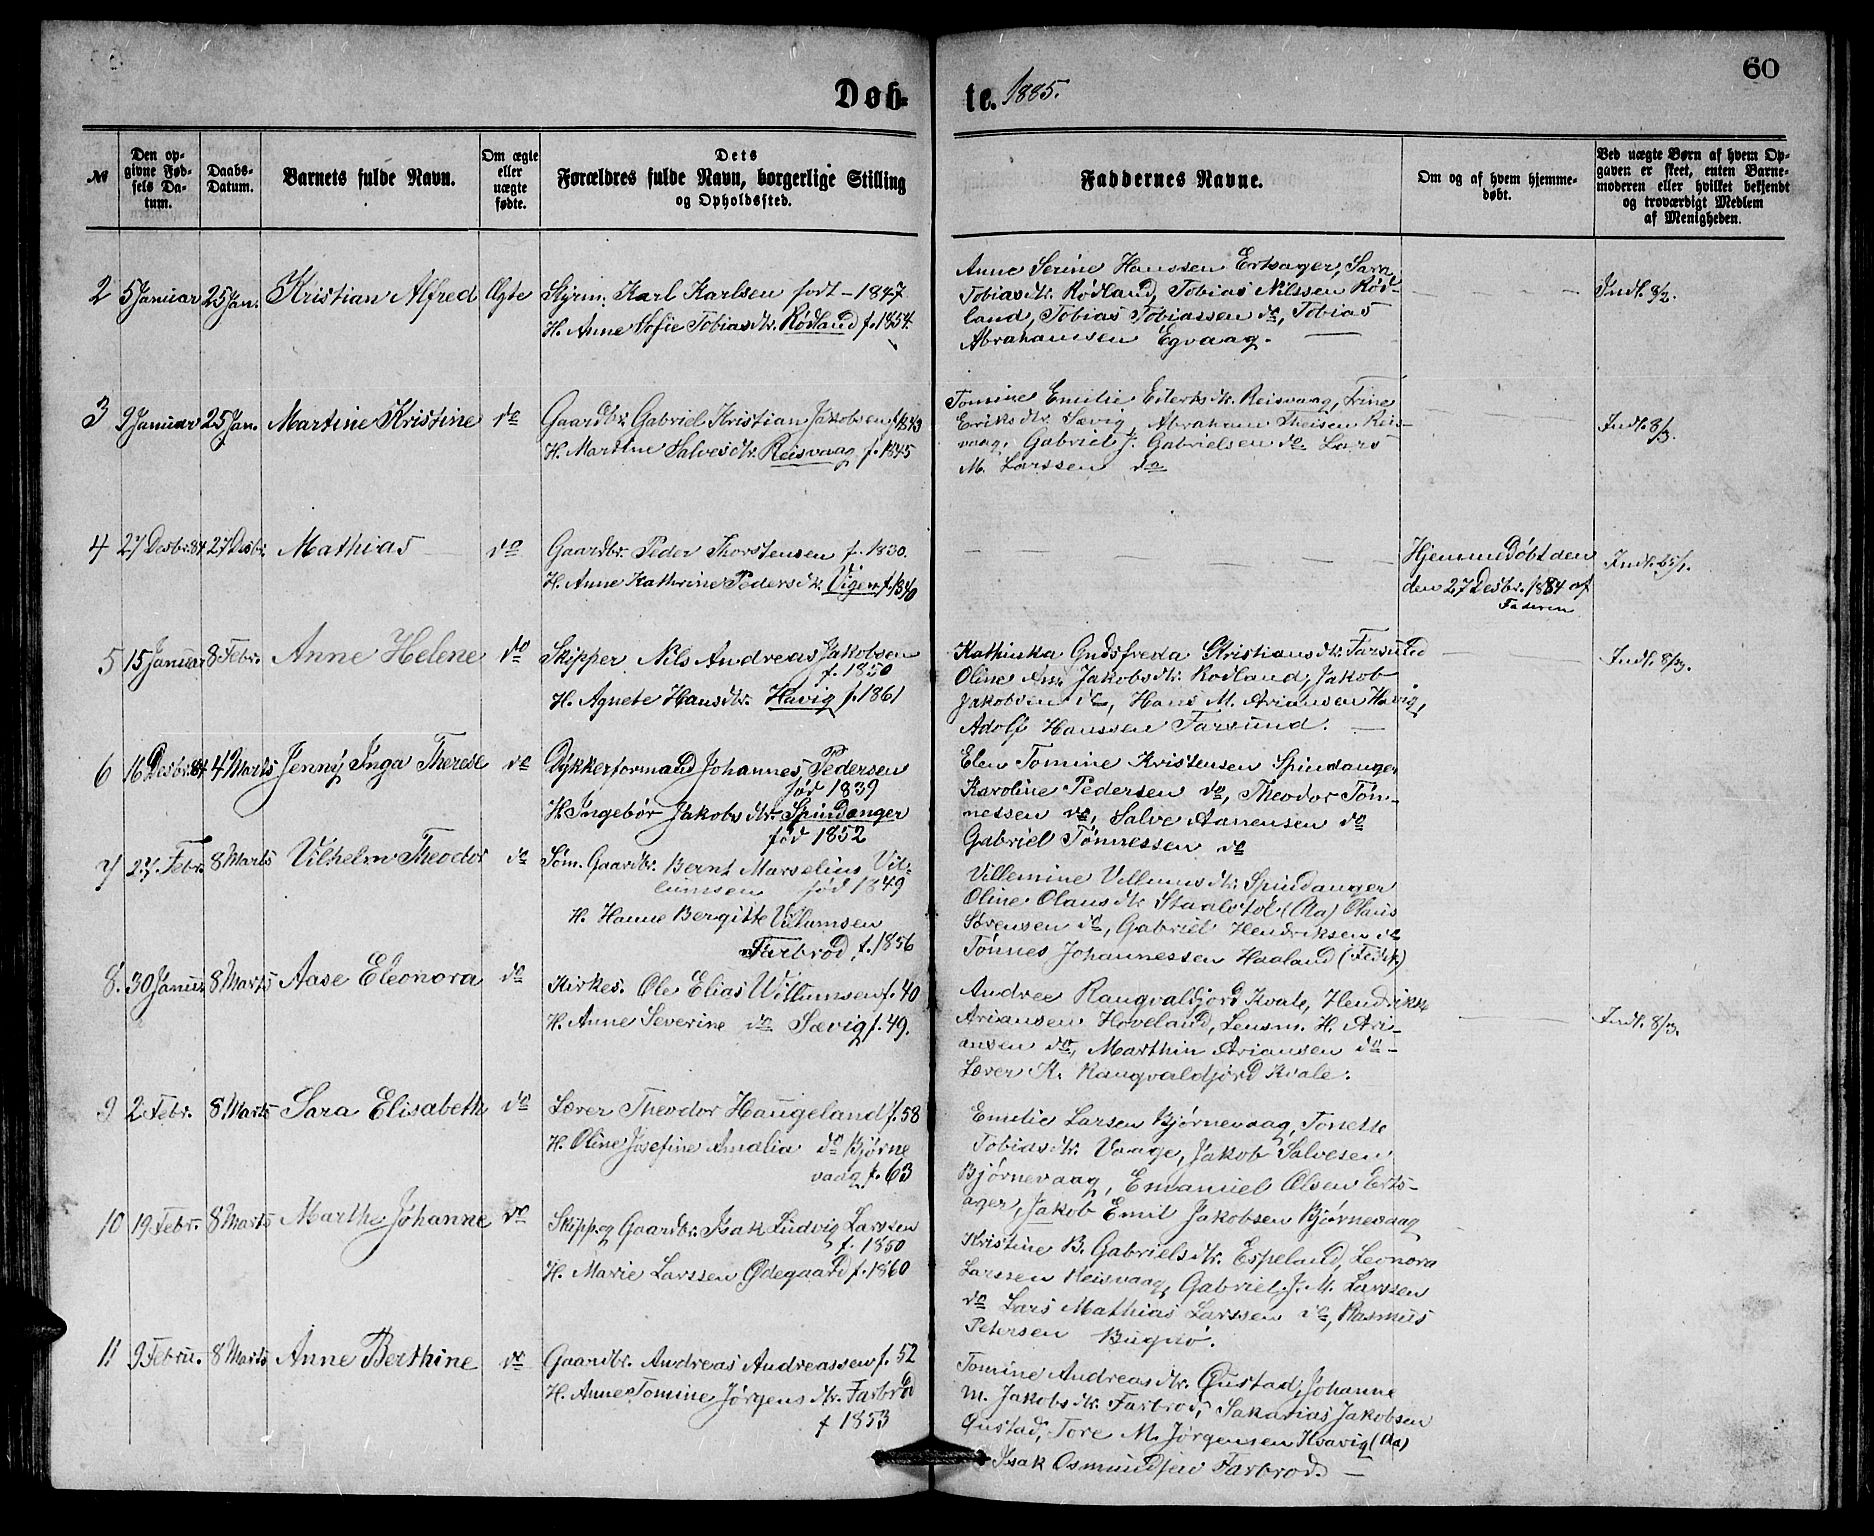 60
Døb- te. 1885.
№
Den op-
givne Fød-
sels Da-
tum.
Daabs-
Datum.
Barnets fulde Navn.
Om ægte
eller
uægte
fødte.
Dets
Forældres fulde Navn, borgerlige Stilling
og Opholdssted.
Faddernes Navne.
Om og af hvem hjemme-
døbt.
Ved uægte Børn af hvem Op-
gaven er skeet, enten Barne-
moderen eller hvilket bekjendt
og troværdigt Medlem
af Menigheden.
2 5 Januar 25 Jan. Kristian Alfred Ægte
Styrm. Karl Karlsen født - 1847
H. Anne Sofie Tobiasdtr. Rødland f. 1854.
Anne Serine Hanssen Ertsager, Sara
Tobiasdtr. Rødland, Tobias Nilssen Rød-
land, Tobias Tobiassen do, Tobias
Abrahamsen Egvaag.
Indl. 8/2.
3 9 Januar 25 Jan. Martine Kristine do
Gaardbr. Gabriel Kristian Jakobsen f. 1843
H. Martine Salvesdtr. Reisvaag f. 1845
Tomine Emilie Eilertsdtr. Reisvaag, Trine
Eriksdtr. Sævig, Abraham Theisen Reis-
vaag, Gabriel J. Gabrielsen do Lars
M. Larssen do
Indl. 8/3.
4 27 Desbr. 84 27 Desbr. Mathias do
Gaardbr. Peder Thorstensen f. 1830.
H. Anne Kathrine Pedersdtr. Vigen f. 1840
Hjemmedøbt den
den 27 Desbr. 1884 af
Faderen
Indl. 25/1.
5 15 Januar 8 Febr. Anne Helene do
Skipper Nils Andreas Jakobsen
f. 1850
H. Agnete Hansdtr. Havig f. 1861
Kathinka Gudsfreda Kristiansdtr. Farsund
Oline Am. Jakobsdtr. Rødland, Jakob
Jakobsen do, Hans M. Ariansen Havig,
Adolf Hanssen Farsund.
Indl. 8/3.
6 16 Desbr. 84 4 Marts Jenny Inga Therese do
Dykkerformand Johannes Pedersen
fød 1839
H. Ingebør Jakobsdtr. Spindanger
fød 1852
Elen Tomine Kristensen Spindanger
Karoline Pedersen do, Theodor Tøn-
nessen do, Salve Aanensen do
Gabriel Tønnessen do
7 27. Febr. 8 Marts Vilhelm Theodor do
Søm. Gaardbr. Bernt Marselius Vil-
lumsen fød 1849
H. Hanne Bergitte Villumsen
Farbrod, f. 1856
Villemine Villumsdtr. Spindanger
Oline Olausdtr. Staalstøl (Aa) Olaus
Sørensen do, Gabriel Hendriksen do
Tønnes Johannessen Haaland (Fedek.)
8. 30 Januar 8 Marts Aase Eleonora do
Kirkes. Ole Elias Willumsen f. 40
H. Anne Severine do Sævig f. 49.
Andree Rangvaldjord Kvale, Hendrikke
Ariansen Hoveland, Lensm. H. Ari-
ansen do, Marthin Ariansen do -
Lærer K. Rangvaldjord Kvale.
Indl. 8/3.
9 2 Febr. 8 Marts Sara Elisabeth do
Lærer Theodor Haugeland f. 58
H. Oline Josefine Amalia do Bjørne
vaag f. 63
Emelie Larsen Bjørnevaag, Tonette
Tobiasdtr. Vaage, Jakob Salvesen
Bjørnevaag, Emanuel Olsen Erts-
ager, Jakob Emil Jakobsen Bjørnevaag
10 19 Febr. 8 Marts Marthe Johanne do
Skip. og Gaardbr. Isak Ludvig Larssen
f. 1850
H. Marie Larssen Ødegaard f. 1860
Kristine B. Gabrielsdtr. Espeland, Leonora
Larssen Reisvaag, Gabriel J. M. Larssen
do Lars Mathias Larssen do, Rasmus
Petersen Bugnø.
11 9 Febru. 8 Marts Anne Berthine do
Gaardbr. Andreas Andreassen f. 52
H. Anne Tomine Jørgensdtr. Farbrod
f 1853
Tomine Andreasdtr. Øustad, Johanne
M. Jakobsdtr. Farbrod, Sakarias Jakobsen
Øustad, Tore M. Jørgensen Kvavig (Aa)
Isak Osmundsen Farbrod.